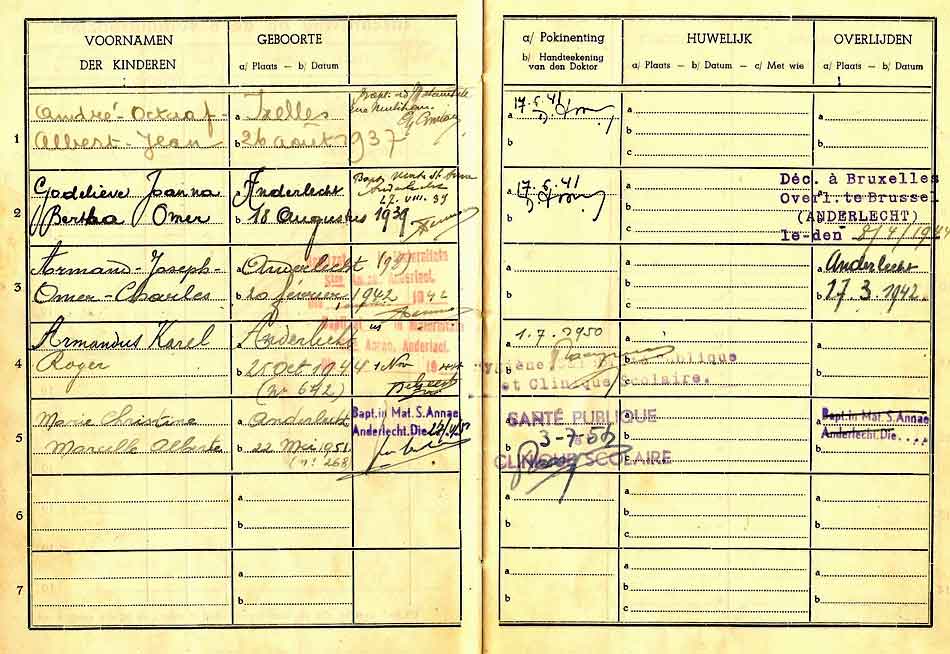 VOORNAMEN
DER KINDEREN
GEBOORTE
a/ Plaats — b/ Datum
a/ Pokinenting
b/ Handteekening
van den Doktor
HUWELIJK
a/ Plaats — b/ Datum — c/ Met wie
OVERLIJDEN
a/ Plaats — b/ Datum
1
André-Octaaf-
Albert-Jean
a Ixelles
b 26 août 1937
17.6.41
a
b
a
b
c
a
b
2
Godelieve Joanna
Bertha Omer
a Anderlecht
b 18 Augustus 1939
27. VIII. 39
17.6.41
a
b
a
b
c
Déc. à Bruxelles
Overl. te Brussel
(ANDERLECHT)
le-den 8/4/1944
3
Armand-Joseph-
Omer-Charles
a Anderlecht
b 20 février 1942
1942
a
b
a
b
c
a Anderlecht
b 17.3.1942.
4
Armandus Karel
Roger
a Anderlecht
b 25 Oct 1944
(nr 642)
1 Nov
1.7.1950
a
b
a
b
c
a
b
et Clinique Scolaire.
5
Marie Christine
Marcelle Alberte
a Anderlecht
b 22 Mei 1951
(n° 268)
Bapt. in Mat. S. Annae
Anderlecht. Die
SANTÉ PUBLIQUE
3-7-52
CLINIQUE SCOLAIRE
a
b
c
Bapt. in Mat. S. Annae
Anderlecht. Die....
6
a
b
a
b
a
b
c
a
b
7
a
b
a
b
a
b
c
a
b